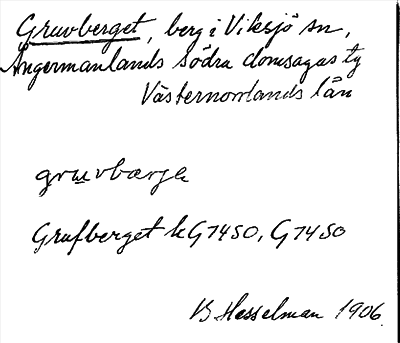 Gruvberget, berg i Viksjö sn,
Ångermanlands södra domsagas tg
Västernorrlands län
gruvbærjə
Grufberget k G7450, G7450
B Hesselman 1906.